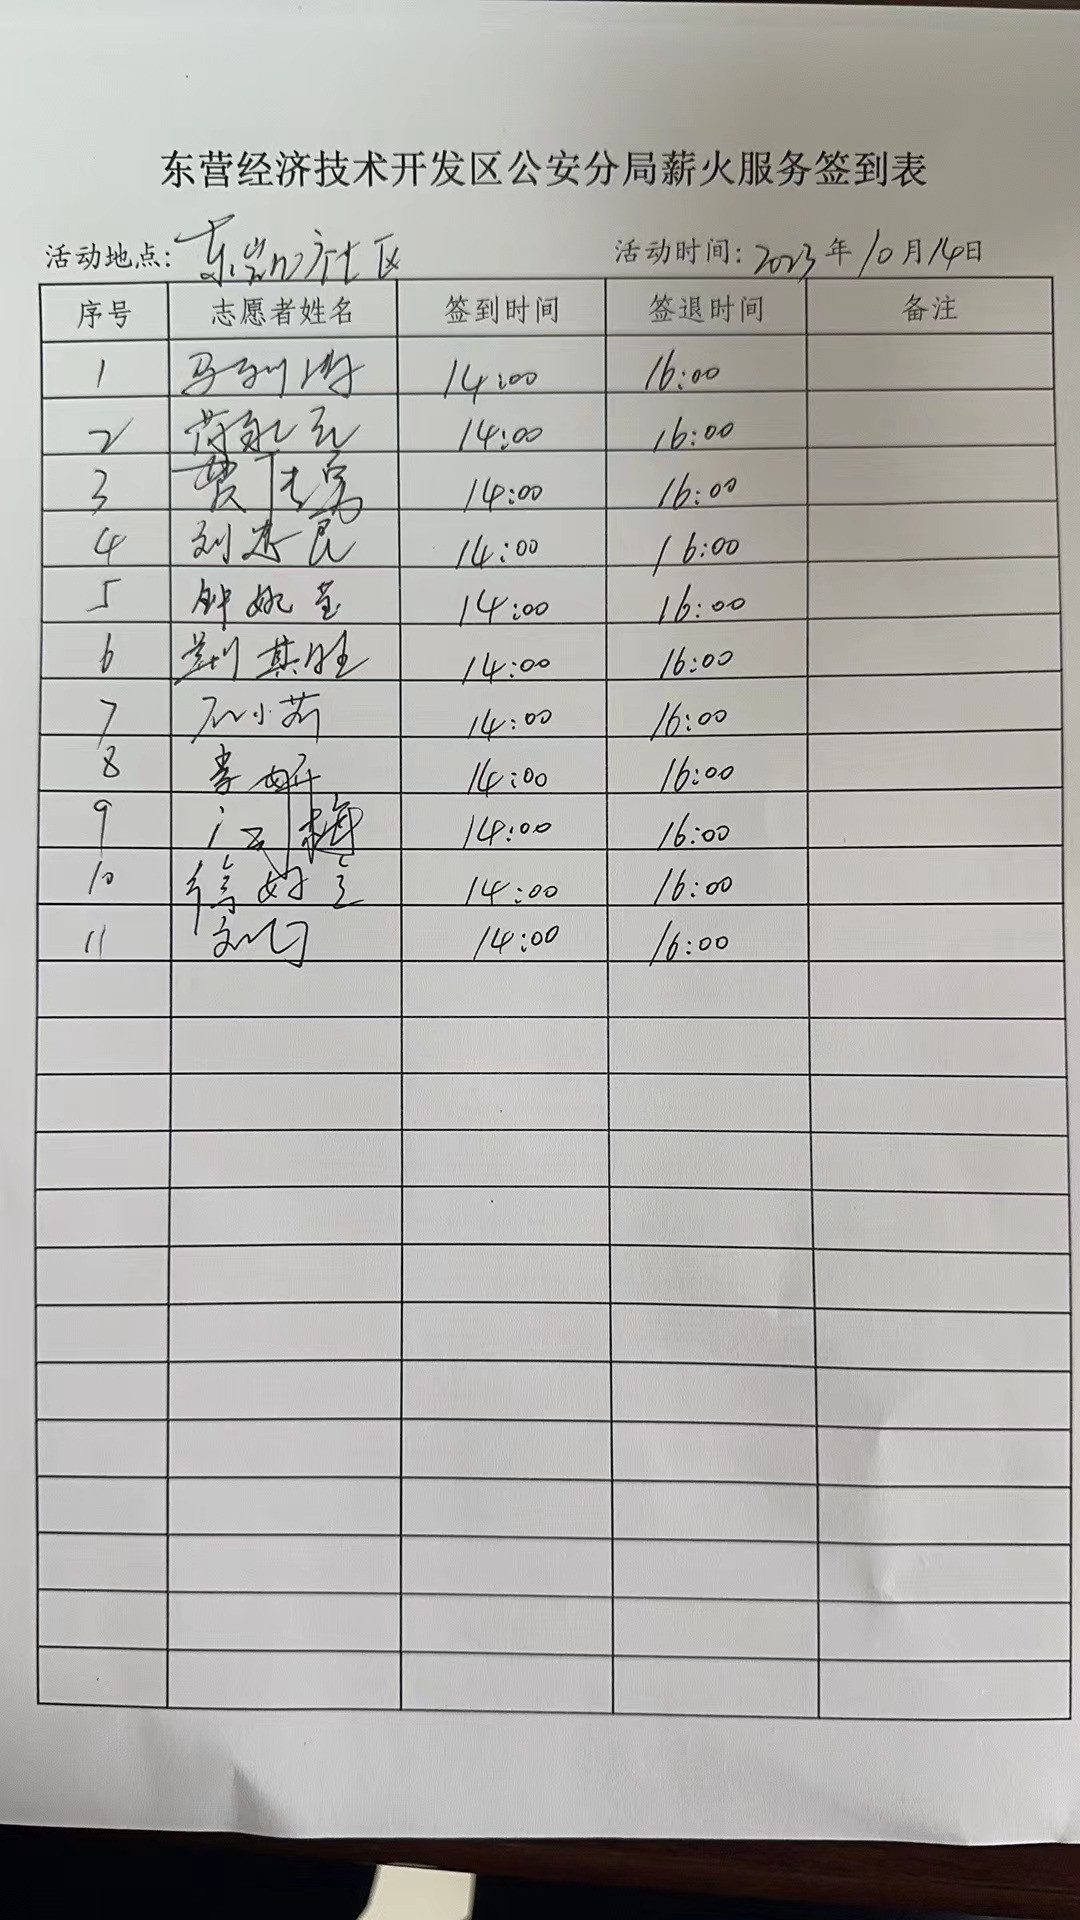 东营经济技术开发区公安分局薪火服务签到表
活动地点: 社区 活动时间: 2023年10月14日
序号 志愿者姓名 签到时间 签退时间 备注
1 14:00 16:00
2 14:00 16:00
3 14:00 16:00
4 刘忠民 14:00 16:00
5 钟姚莹 14:00 16:00
6 荆其胜 14:00 16:00
7 石小茹 14:00 16:00
8 李妍 14:00 16:00
9 14:00 16:00
10 14:00 16:00
11 14:00 16:00